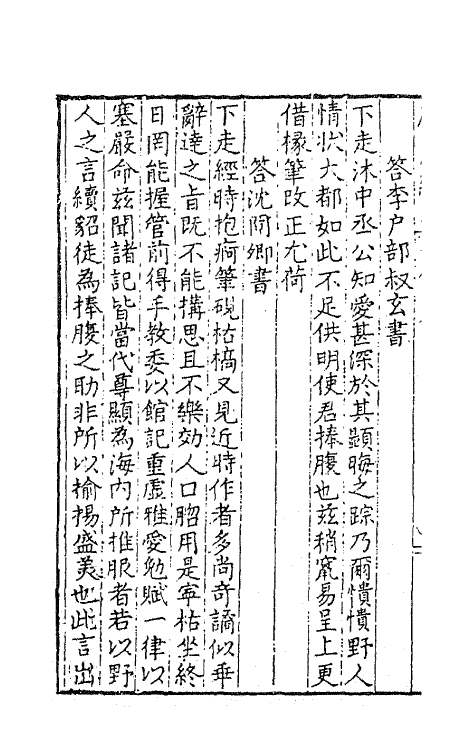 答李戶部叔玄書
下走沐中丞公知愛甚深於其顯晦之踪乃爾憒憒野人
情狀大都如此不足供明使君捧腹也茲稍竄易呈上更
借椽筆改正尤荷
答沈閒卿書
下走經時抱痾筆硯枯槁又見近時作者多尚奇譎似乖
辭達之旨既不能搆思且不樂効人口脗用是寧枯坐終
日罔能握管前得手教委以館記重虛雅愛勉賦一律以
塞嚴命茲聞諸記皆當代尊顯為海內所推服者若以野
人之言續貂徒為捧腹之助非所以揄揚盛美也此言出